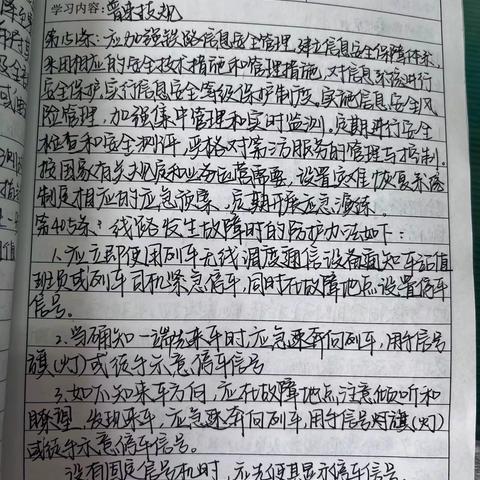 学习内容:普速技规
第15条:应加强铁路信息安全管理,建立信息安全保障体系,
采用相应的安全技术措施和管理措施,对信息系统进行
安全保护,实行信息安全等级保护制度。实施信息安全风
险管理,加强集中管理和实时监测。定期进行安全
检查和安全测评,严格对第三方服务的管理与控制。
按国家有关规定和业务运营需要,设置灾难恢复系统
制度相应的应急预案,定期开展应急演练。
第405条:线路发生故障时的防护办法如下:
1.应立即使用列车无线调度通信设备通知车站值
班员或列车司机紧急停车,同时在故障地点设置停车
信号。
2.当确知一端先来车时,应急速奔向列车,用手信号
旗(灯)或徒手示意停车信号
3.如不知来车方向,应在故障地点注意倾听和
瞭望,发现来车,应急速奔向列车,用手信号旗(灯)
或徒手示意停车信号。
设有固定信号机时,应先使其显示停车信号。